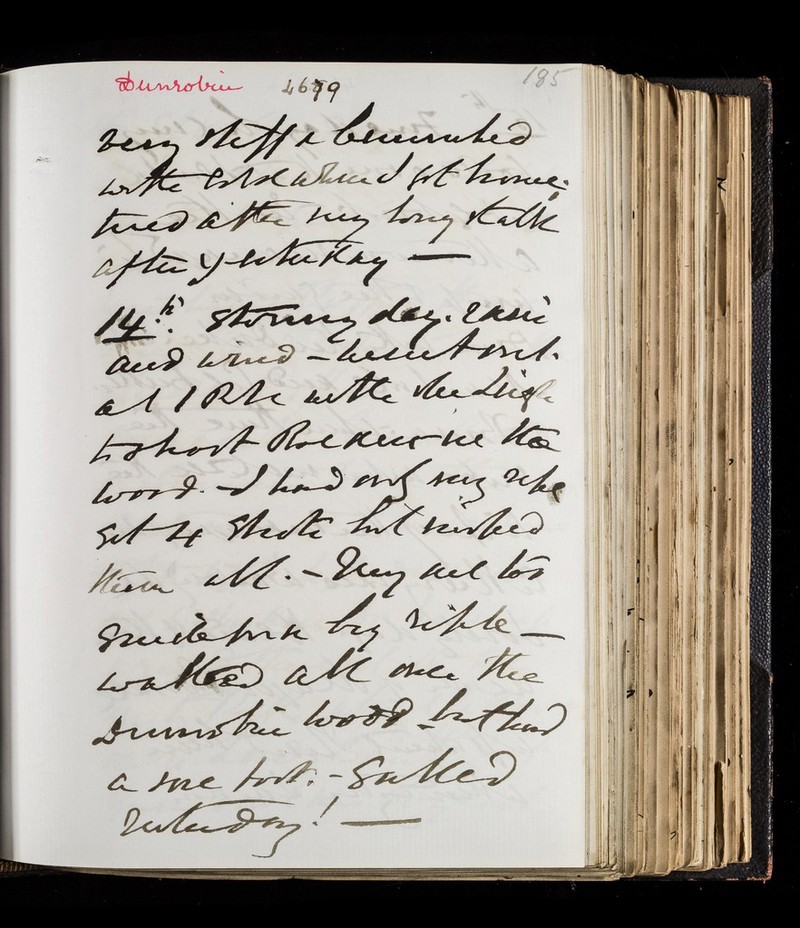 Dunrobin 4679 185
very stiff & benumbed
with cold when I got home.
tired after my long stalk
after yesterday —
14th. Stormy day. rain
and wind – went out
at 1 with the
to shoot Roe deer in the
wood. – I had only my rifle
got 4 shots but missed
them all. – They are too
small for a big rifle —
walked all over the
Dunrobin wood – but had
a sore foot. – galled
yesterday! —